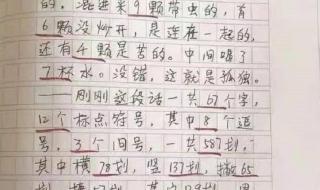 的。混进来9颗带虫的，有
6颗没炒开，是连在一起的，
还有4颗是苦的。中间喝了
7杯水。没错，这就是孤独。
——刚刚这段话一共67个字，
12个标点符号，其中8个逗
号，3个句号，一共587划，
其中横78划，竖137划，撇65